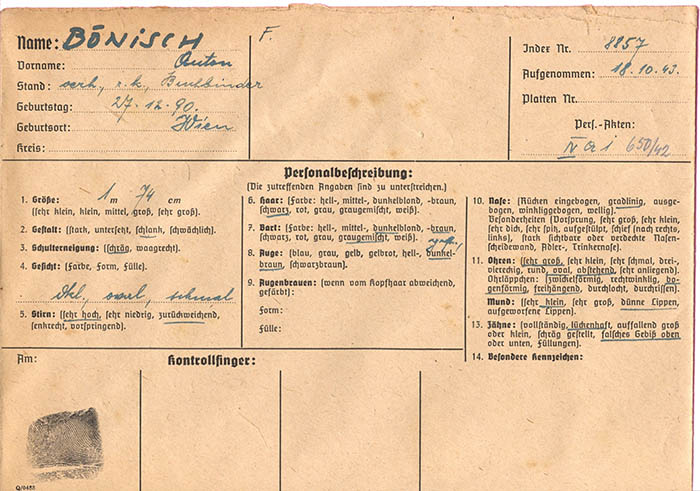 Name: BÖNISCH
Vorname: Anton
Stand: verh, r.k, Buchbinder
Geburtstag: 27.12.90.
Geburtsort: Wien
Kreis:
F.
Index Nr. 8857
Aufgenommen: 18.10.43.
Platten Nr.
Pers.-Akten:
IV a 1 650/42
Personalbeschreibung:
(Die zutreffenden Angaben sind zu unterstreichen.)
1. Größe: 1 m 74 cm
(sehr klein, klein, mittel, groß, sehr groß).
2. Gestalt: (stark, untersetzt, schlank, schwächlich).
3. Schulterneigung: (schräg, waagrecht).
4. Gesicht: (Farbe, Form, Fülle).
dkl, oval, schmal
5. Stirn: (sehr hoch, sehr niedrig, zurückweichend,
senkrecht, vorspringend).
6. Haar: (Farbe: hell-, mittel-, dunkelblond, -braun,
schwarz, rot, grau, graugemischt, weiß).
7. Bart: (Farbe: hell-, mittel-, dunkelblond, -braun,
schwarz, rot, grau, graugemischt, weiß).
8. Auge: (blau, grau, gelb, gelbrot, hell-, dunkel-
braun, schwarzbraun).
9. Augenbrauen: (wenn vom Kopfhaar abweichend,
gefärbt):
Form:
Fülle:
10. Nase: (Rücken eingebogen, gradlinig, ausge-
bogen, winkliggebogen, wellig).
Besonderheiten (Vorsprung, sehr groß, sehr klein,
sehr dick, sehr spitz, aufgestülpt, schief (nach rechts,
links), stark sichtbare oder verdeckte Nasen-
scheidewand, Adler-, Trinkernase).
11. Ohren: (sehr groß, sehr klein, sehr schmal, drei-,
viereckig, rund, oval, abstehend, sehr anliegend).
Ohrläppchen: (zwickelförmig, rechtwinklig, bo-
genförmig, freihängend, durchlocht, durchrissen).
Mund: (sehr klein, sehr groß, dünne Lippen,
aufgeworfene Lippen).
13. Zähne: (vollständig, lückenhaft, auffallend groß
oder klein, schräg gestellt, falsches Gebiß oben
oder unten, Füllungen).
14. Besondere Kennzeichen:
Am:
Kontrollfinger: